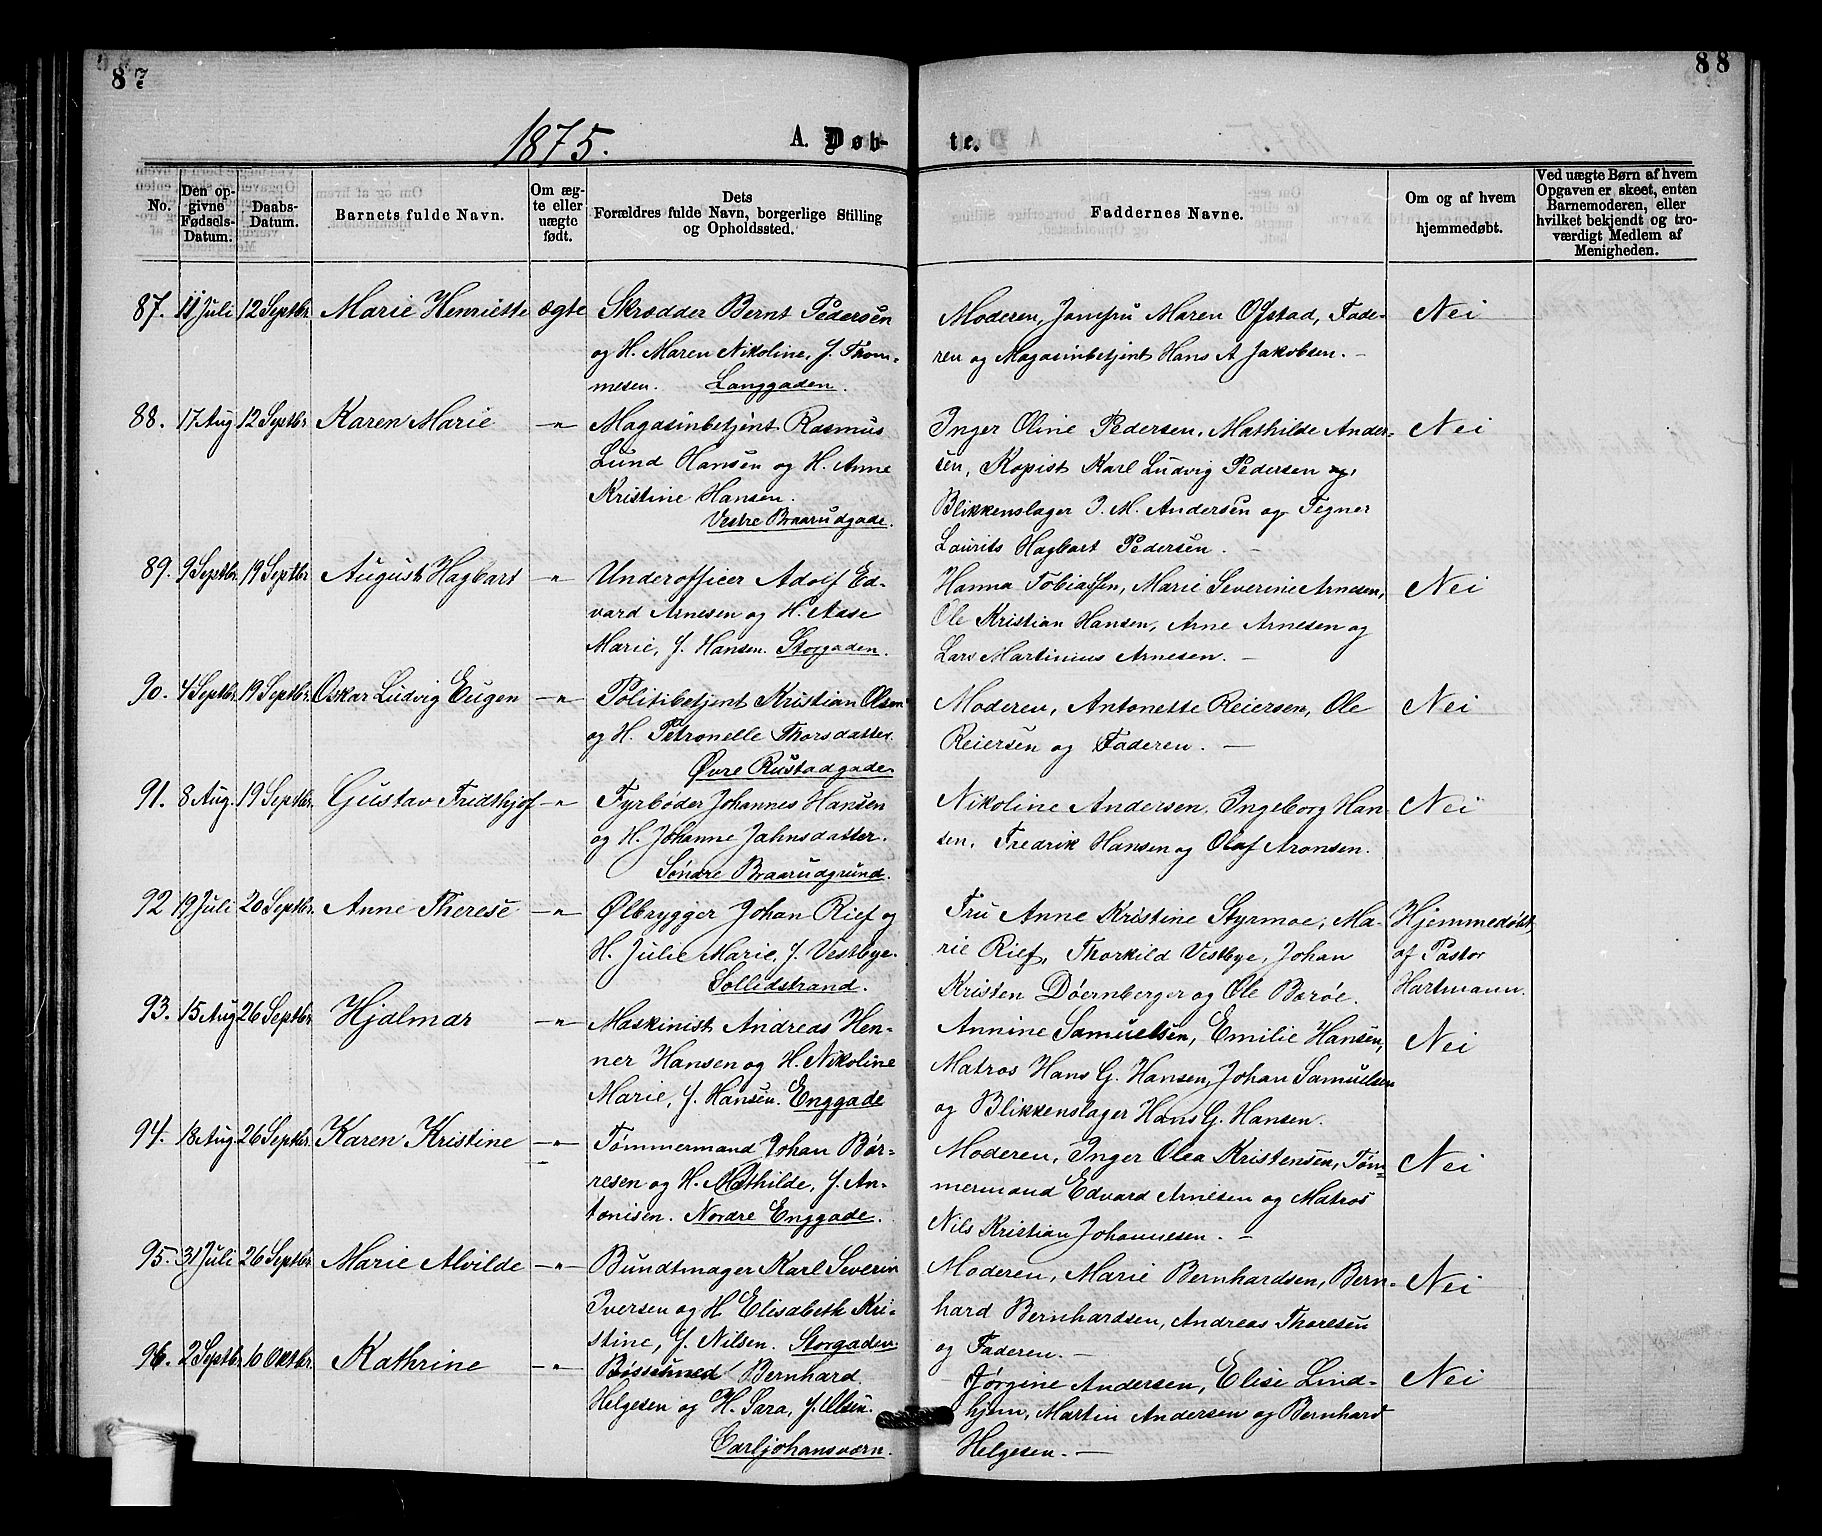 87
88
1875.
A. Døb-
te.
No.
Den op-
givne
Fødsels-
Datum.
Daabs-
Datum.
Barnets fulde Navn.
Om æg-
te eller
uægte
født.
Dets
Forældres fulde Navn, borgerlige Stilling
og Opholdssted.
Faddernes Navne.
Om og af hvem
hjemmedøbt.
Ved uægte Børn af hvem
Opgaven er skeet, enten
Barnemoderen, eller
hvilket bekjendt og tro-
værdigt Medlem af
Menigheden.
87. 11 Juli 12 Septbr. Marie Henriette ægte Skrædder Bernt Pedersen
og H. Maren Nikoline, f. Thom-
mesen. Langgaden.
Moderen, Jomfru Maren Ofstad, Fade-
ren og Magasinbetjent Hans A Jakobsen. —
Nei
88. 17 Aug 12 Septbr. Karen Marie —"— Magasinbetjent Rasmus
Lund Hansen og H. Anne
Kristine Hansen.
Vestre Braarudgade.
Inger Oline Pedersen, Mathilde Ander-
sen, Kopist Karl Ludvig Pedersen og,
Blikkenslager I. M. Andersen og Tegner
Laurits Hagbart Pedersen. —
Nei
89. 9 Septbr. 19 Septbr. August Hagbart —"— Underofficer Adolf Ed-
vard Arnesen og H. Aase
Marie, f. Hansen. Storgaden.
Hanna Tobiassen, Marie Severine Arnesen,
Ole Kristian Hansen, Arne Arnesen og
Lars Martinius Arnesen. —
Nei
90. 4 Septbr. 19 Septbr. Oskar Ludvig Eugen —"— Politibetjent Kristian Olsen
og H. Petronelle Thorsdatter.
Øvre Rustadgade.
Moderen, Antonette Reiersen, Ole
Reiersen og Faderen. —
Nei
91. 8 Aug. 19 Septbr. Gustav Fridthjof —"— Fyrbøder Johannes Hansen
og H. Johanne Jahnsdatter.
Søndre Braarudgrund.
Nikoline Andersen, Ingeborg Han-
sen, Fredrik Hansen og Olaf Aronsen.
Nei
92 19 Juli 20 Septbr. Anne Therese —"— Ølbrygger Johan Rief og
H. Julie Marie, f. Vestbye.
Sollidstrand.
Fru Anne Kristine Styrmoe, Ma-
rie Rief, Thorkild Vestbye, Johan
Kristen Döernberger og Ole Barøe.
Hjemmedøbt
af Pastor
Hartmann.
93. 15 Aug 26 Septbr. Hjalmar —"— Maskinist Andreas Hen-
ner Hansen og H. Nikoline
Marie, f. Hansen. Enggade
Annine Samuelsen, Emilie Hansen,
Matros Hans G. Hansen, Johan Samuelsen
og Blikkenslager Hans G. Hansen.
Nei
94. 18 Aug 26 Septbr. Karen Kristine —"— Tømmermand Johan Bør-
resen og H. Mathilde, f. An-
tonisen. Nordre Enggade.
Moderen, Inger Olea Kristensen, Tøm-
mermand Edvard Arnesen og Matros
Nils Kristian Johannesen. —
Nei
95. 31 Juli 26 Septbr. Marie Alvilde —"— Bundtmager Karl Severin
Iversen og H. Elisabeth Kri-
stine, f. Nilsen. Storgaden.
Moderen, Marie Bernhardsen, Bern-
hard Bernhardsen, Andreas Thoresen
og Faderen. —
Nei
96. 2 Septbr. 10 Oktbr. Kathrine —"— Bøssesmed Bernhard
Helgesen og H. Sara, f. Olsen.
Carljohansværn.
Jørgine Andersen, Elise Lind-
hjem, Martin Andersen og Bernhard
Helgesen. —
Nei